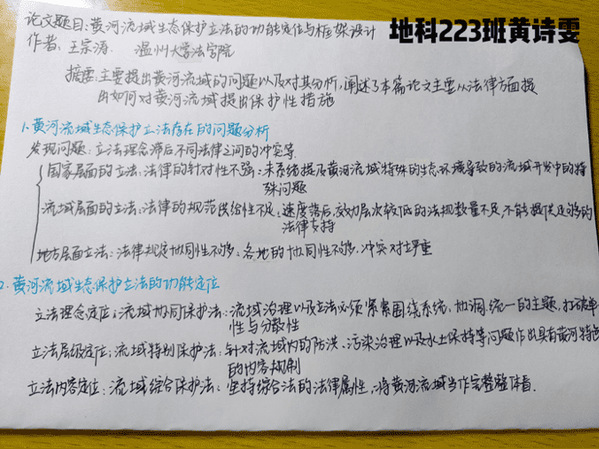 地科223班黄诗雯
论文题目:黄河流域生态保护立法的功能定位与框架设计
作者:王宗涛 温州大学法学院
摘要:主要提出黄河流域的问题以及对其分析,阐述了本篇论文主要从法律方面提
出如何对黄河流域提出保护性措施
1.黄河流域生态保护立法存在的问题分析
发现问题:立法理念滞后不同法律之间的冲突等
国家层面的立法:法律的针对性不强:未系统提及黄河流域特殊的生态环境导致的流域开发中的特
殊问题
流域层面的立法:法律的规范供给性不足:速度落后,效力层次较低的法规数量不足,不能提供足够的
法律支持
地方层面立法:法律规定协同性不够:各地的协同性不够,冲突对立严重
2.黄河流域生态保护立法的功能定位
立法理念定位:流域协同保护法:流域治理以及立法必须紧紧围绕系统、协调、统一的主题,打破单
性与分散性
立法层级定位:流域特别保护法:针对流域内的防洪、污染治理以及水土保持等问题作出具有黄河特色
的内容规制
立法内容定位:流域综合保护法:坚持综合法的法律属性,将黄河流域当作完整整体看.